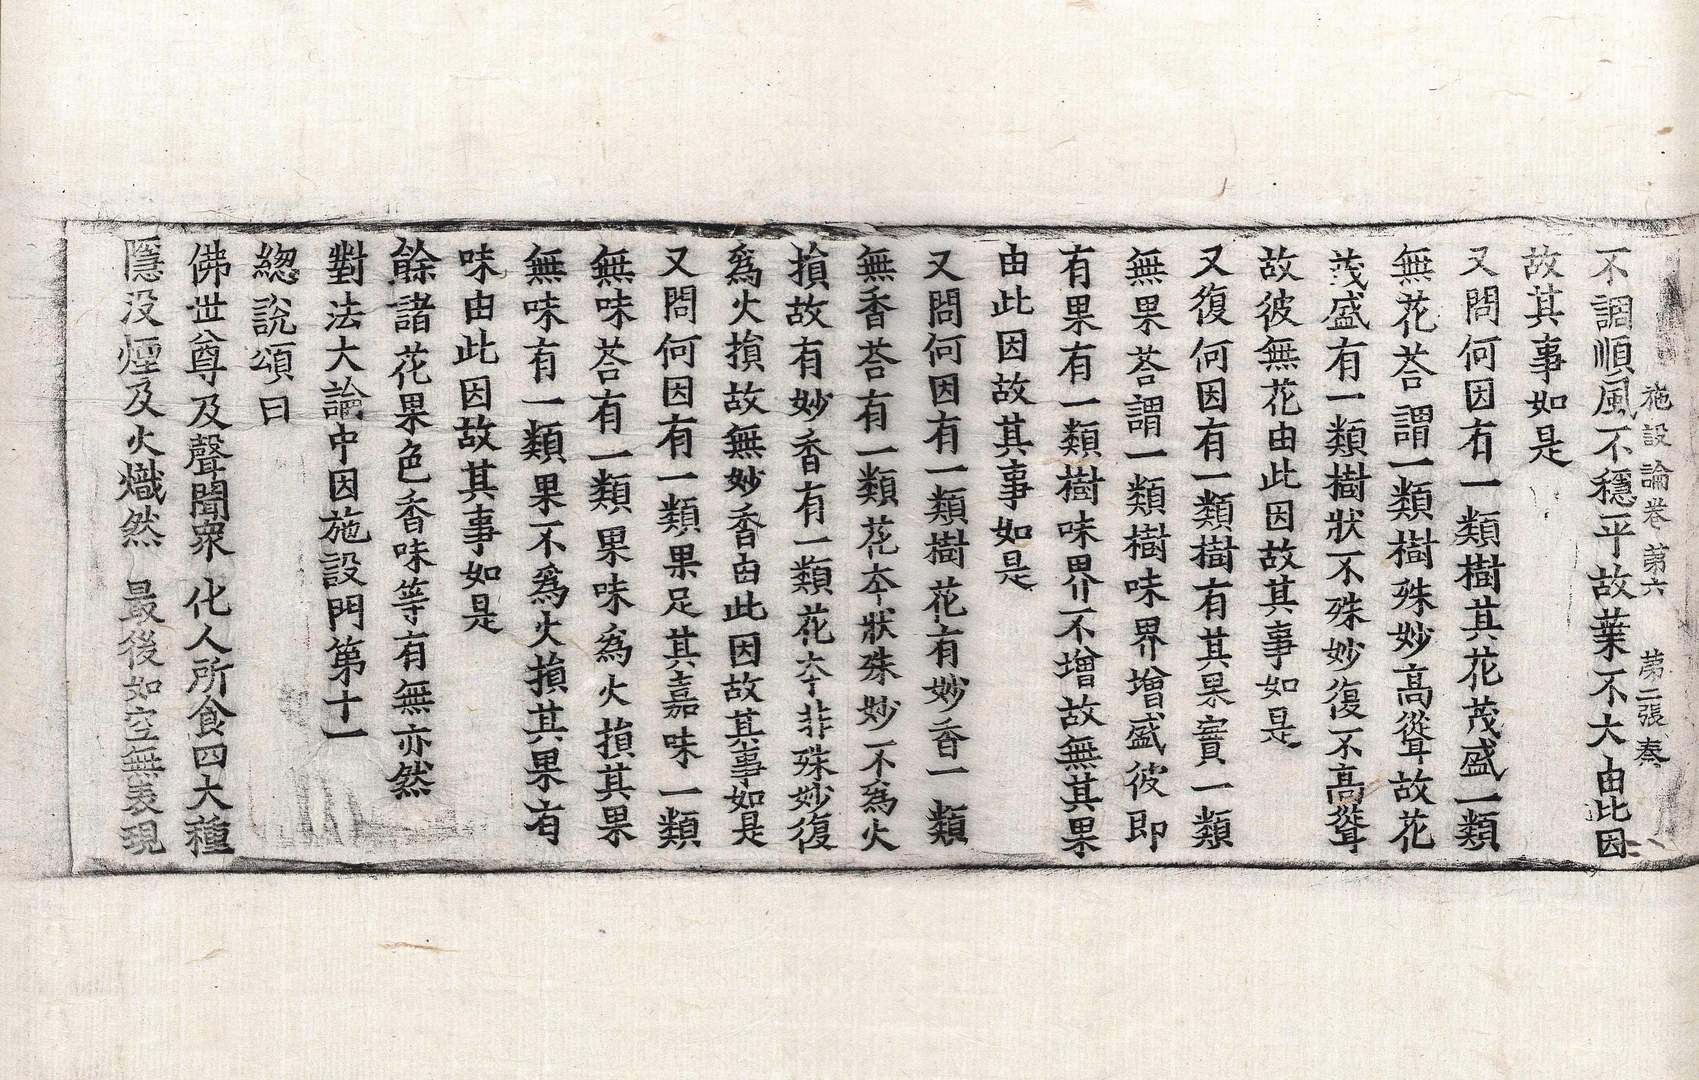 施設論卷第六　第二張　奏
不調順風不穩平故葉不大由此因
故其事如是
又問何因有一類樹其花茂盛一類
無花荅謂一類樹殊妙高聳故花
茂盛有一類樹狀不殊妙復不高聳
故彼無花由此因故其事如是
又復何因有一類樹有其果實一類
無果荅謂一類樹味界增盛彼即
有果有一類樹味界不增故無其果
由此因故其事如是
又問何因有一類樹花有妙香一類
無香荅有一類花夲狀殊妙不為火
損故有妙香有一類花夲非殊妙復
爲火損故無妙香由此因故其事如是
又問何因有一類果足其嘉味一類
無味荅有一類果味為火損其果
無味有一類果不爲火損其果有
味由此因故其事如是
餘諸花果色香味等有無亦然
對法大論中因施設門第十一
緫說頌曰
佛世尊及聲聞衆　化人所食四大種
隱没煙及火熾然　最後如空無表現